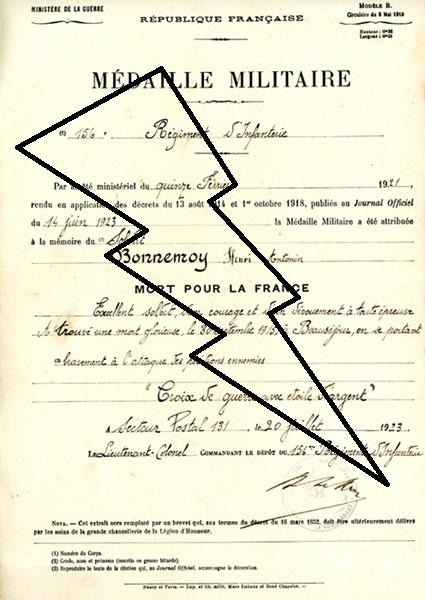 MINISTÈRE DE LA GUERRE
RÉPUBLIQUE FRANÇAISE
MODÈLE B.
Circulaire du 8 Mai 1919
Hauteur : 0m32
Largeur : 0m21
MÉDAILLE MILITAIRE
(1) 156e Régiment d'Infanterie
Par arrêté ministériel du quinze Février 1921,
rendu en application des décrets du 13 août 1914 et 1er octobre 1918, publiés au Journal Officiel
du 14 juin 1923 la Médaille Militaire a été attribuée
à la mémoire du Soldat
Bonnemoy Henri Antonin
MORT POUR LA FRANCE
Excellent soldat, d'un courage et d'un dévouement à toute épreuve
A trouvé une mort glorieuse, le septembre 1915, à Beauséjour, en se portant
bravement à l'attaque des positions ennemies
"Croix de guerre avec étoile d'argent"
A Secteur Postal 131, le 20 juillet 1923.
LE Lieutenant-Colonel COMMANDANT LE DÉPÔT DU 156e Régiment d'Infanterie
NOTA. — Cet extrait sera remplacé par un brevet qui, aux termes du décret du 16 mars 1852, doit être ultérieurement délivré
par les soins de la grande chancellerie de la Légion d'Honneur.
(1) Numéro du Corps.
(2) Grade, nom et prénoms (inscrits en grosse bâtarde).
(3) Reproduire le texte de la citation qui, au Journal Officiel, accompagne la décoration.
Nancy et Paris. — Imp. et lib. milit. Marc Imhaus et René Chapelot.